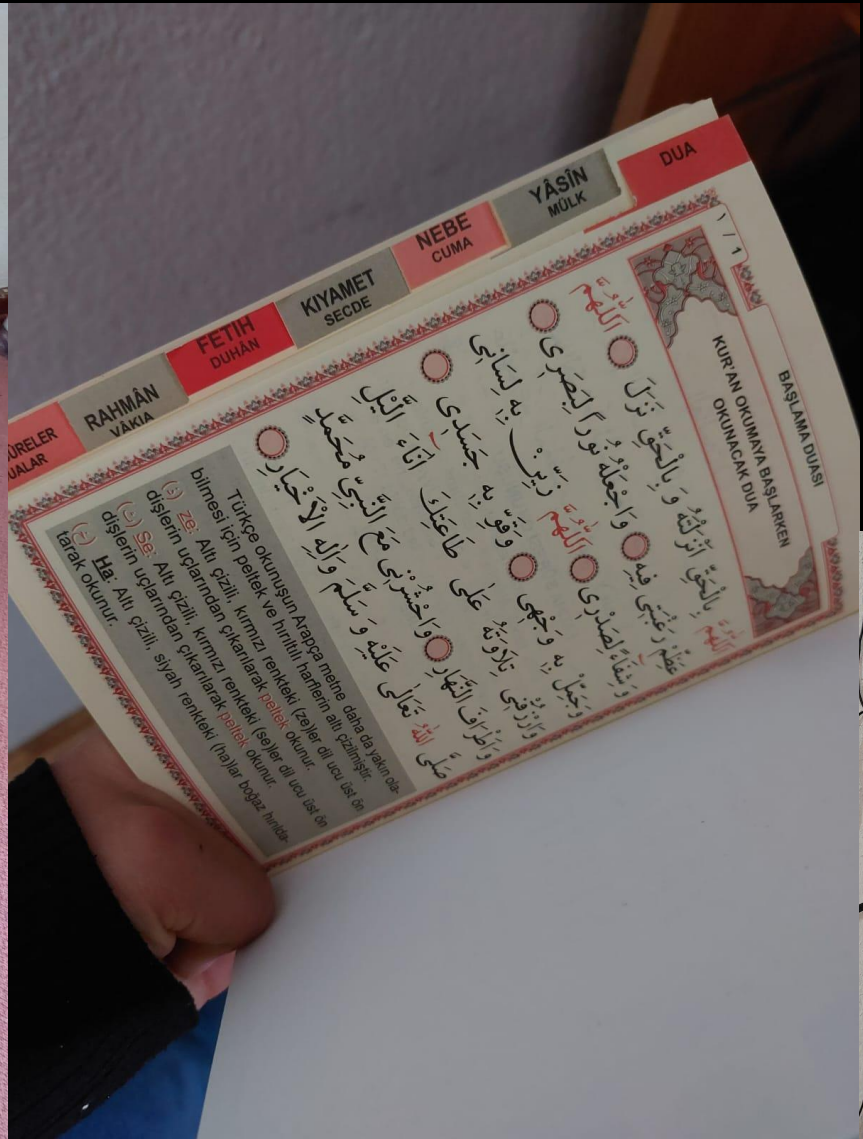 DUA
YÂSÎN
MÜLK
NEBE
CUMA
KIYAMET
SECDE
FETİH
DUHÂN
RAHMÂN
VÂKIA
ÜRELER
UALAR
BAŞLAMA DUASI
1 / ١
KUR'AN OKUMAYA BAŞLARKEN
OKUNACAK DUA
اَللّٰهُمَّ بِالْحَقِّ اَنْزَلْتَهُ وَ بِالْحَقِّ نَزَلَ اَللّٰهُمَّ
عَظِّمْ رَغْبَتِى فِيهِ وَاجْعَلْهُ نُورًا لِبَصَرِى
وَشِفَاءً لِصَدْرِى اَللّٰهُمَّ زَيِّنْ بِهِ لِسَانِى
وَجَمِّلْ بِهِ وَجْهِى وَقَوِّ بِهِ جَسَدِى
وَارْزُقْنِى تِلَاوَتَهُ عَلٰى طَاعَتِكَ اٰنَاءَ الَّيْلِ
وَاَطْرَافَ النَّهَارِ وَاحْشُرْنِى مَعَ النَّبِىِّ مُحَمَّدٍ
صَلَّى اللّٰهُ تَعَالٰى عَلَيْهِ وَ سَلَّمَ وَاٰلِهِ الْاَخْيَارِ
Türkçe okunuşun Arapça metne daha da yakın ola-
bilmesi için peltek ve hırıltılı harflerin altı çizilmiştir.
(ذ) ze: Altı çizili, kırmızı renkteki (ze)ler dil ucu üst ön
dişlerin uçlarından çıkarılarak peltek okunur.
(ث) Se: Altı çizili, kırmızı renkteki (se)ler dil ucu üst ön
dişlerin uçlarından çıkarılarak peltek okunur.
(خ) Ha: Altı çizili, siyah renkteki (ha)lar boğaz hırılda-
tarak okunur.